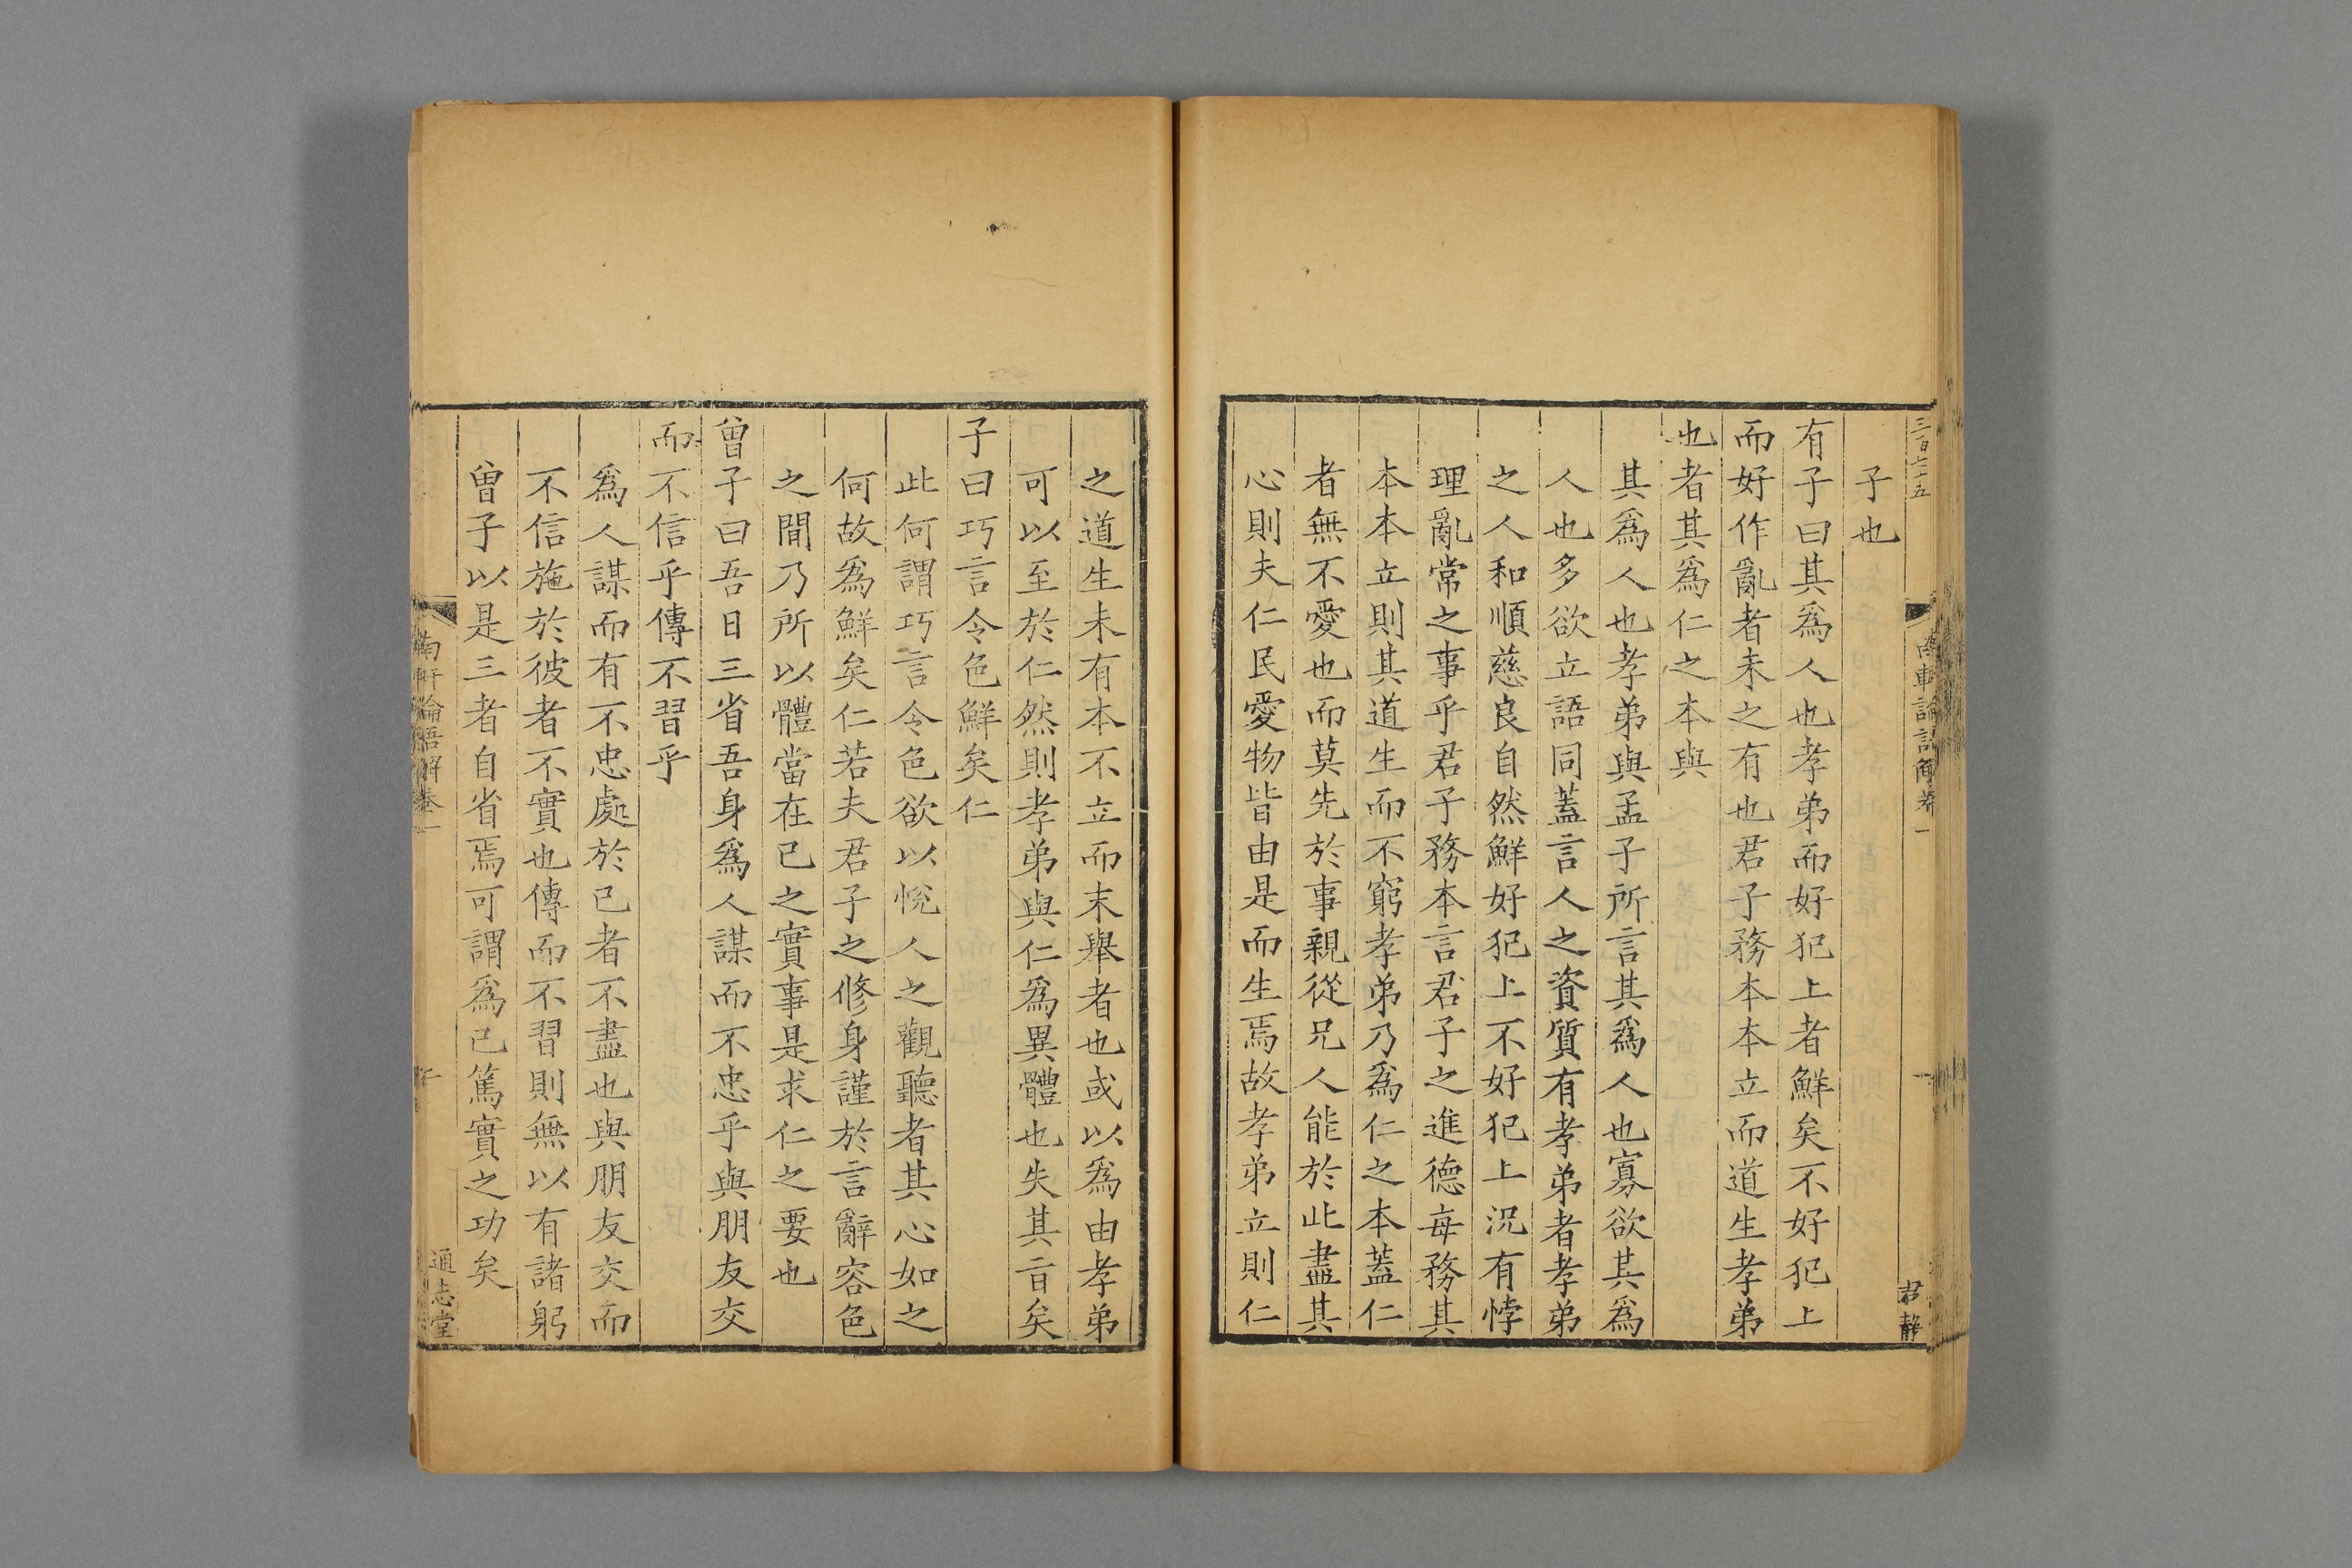 三百七十五
南軒論語解卷一
一
君靜
子也
有子曰其爲人也孝弟而好犯上者鮮矣不好犯上
而好作亂者未之有也君子務本本立而道生孝弟
也者其爲仁之本與
其爲人也孝弟與孟子所言其爲人也寡欲其爲
人也多欲立語同蓋言人之資質有孝弟者孝弟
之人和順慈良自然鮮好犯上不好犯上況有悖
理亂常之事乎君子務本言君子之進德每務其
本本立則其道生而不窮孝弟乃爲仁之本蓋仁
者無不愛也而莫先於事親從兄人能於此盡其
心則夫仁民愛物皆由是而生焉故孝弟立則仁
之道生未有本不立而末舉者也或以爲由孝弟
可以至於仁然則孝弟與仁爲異體也失其旨矣
子曰巧言令色鮮矣仁
此何謂巧言令色欲以悅人之觀聽者其心如之
何故爲鮮矣仁若夫君子之修身謹於言辭容色
之間乃所以體當在己之實事是求仁之要也
曾子曰吾日三省吾身爲人謀而不忠乎與朋友交
而不信乎傳不習乎
爲人謀而有不忠處於己者不盡也與朋友交而
不信施於彼者不實也傳而不習則無以有諸躬
曾子以是三者自省焉可謂爲己篤實之功矣
南軒論語解卷一
通志堂